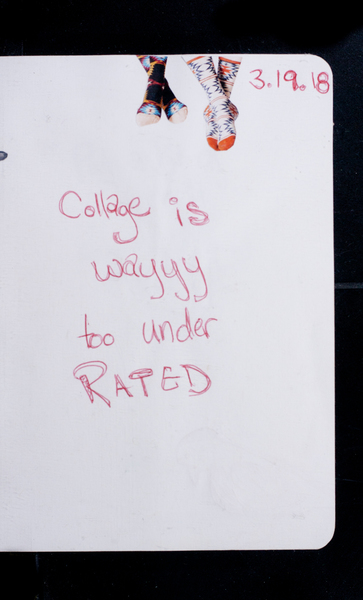 3.19.18
Collage is
wayyy
too under
RATED